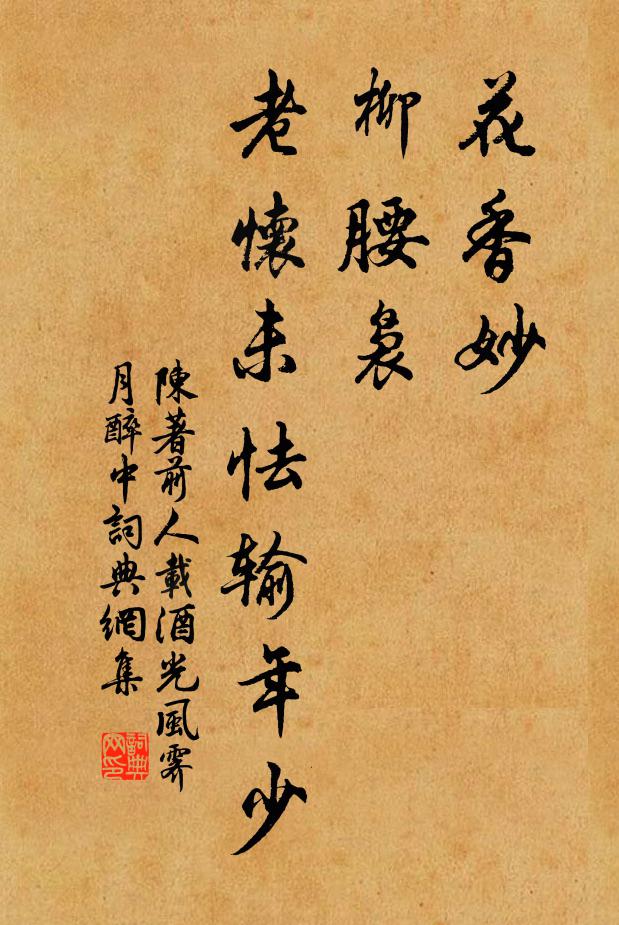 花香妙
柳腰裊
老懷未怯輸年少
陳著前人載酒光風霽
月醉中詞典網集
詞典
网印